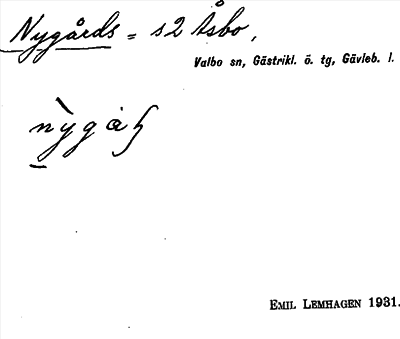 Nygårds = s2 Åsbo,
Valbo sn, Gästrikl. ö. tg, Gävleb. l.
EMIL LEMHAGEN 1931.